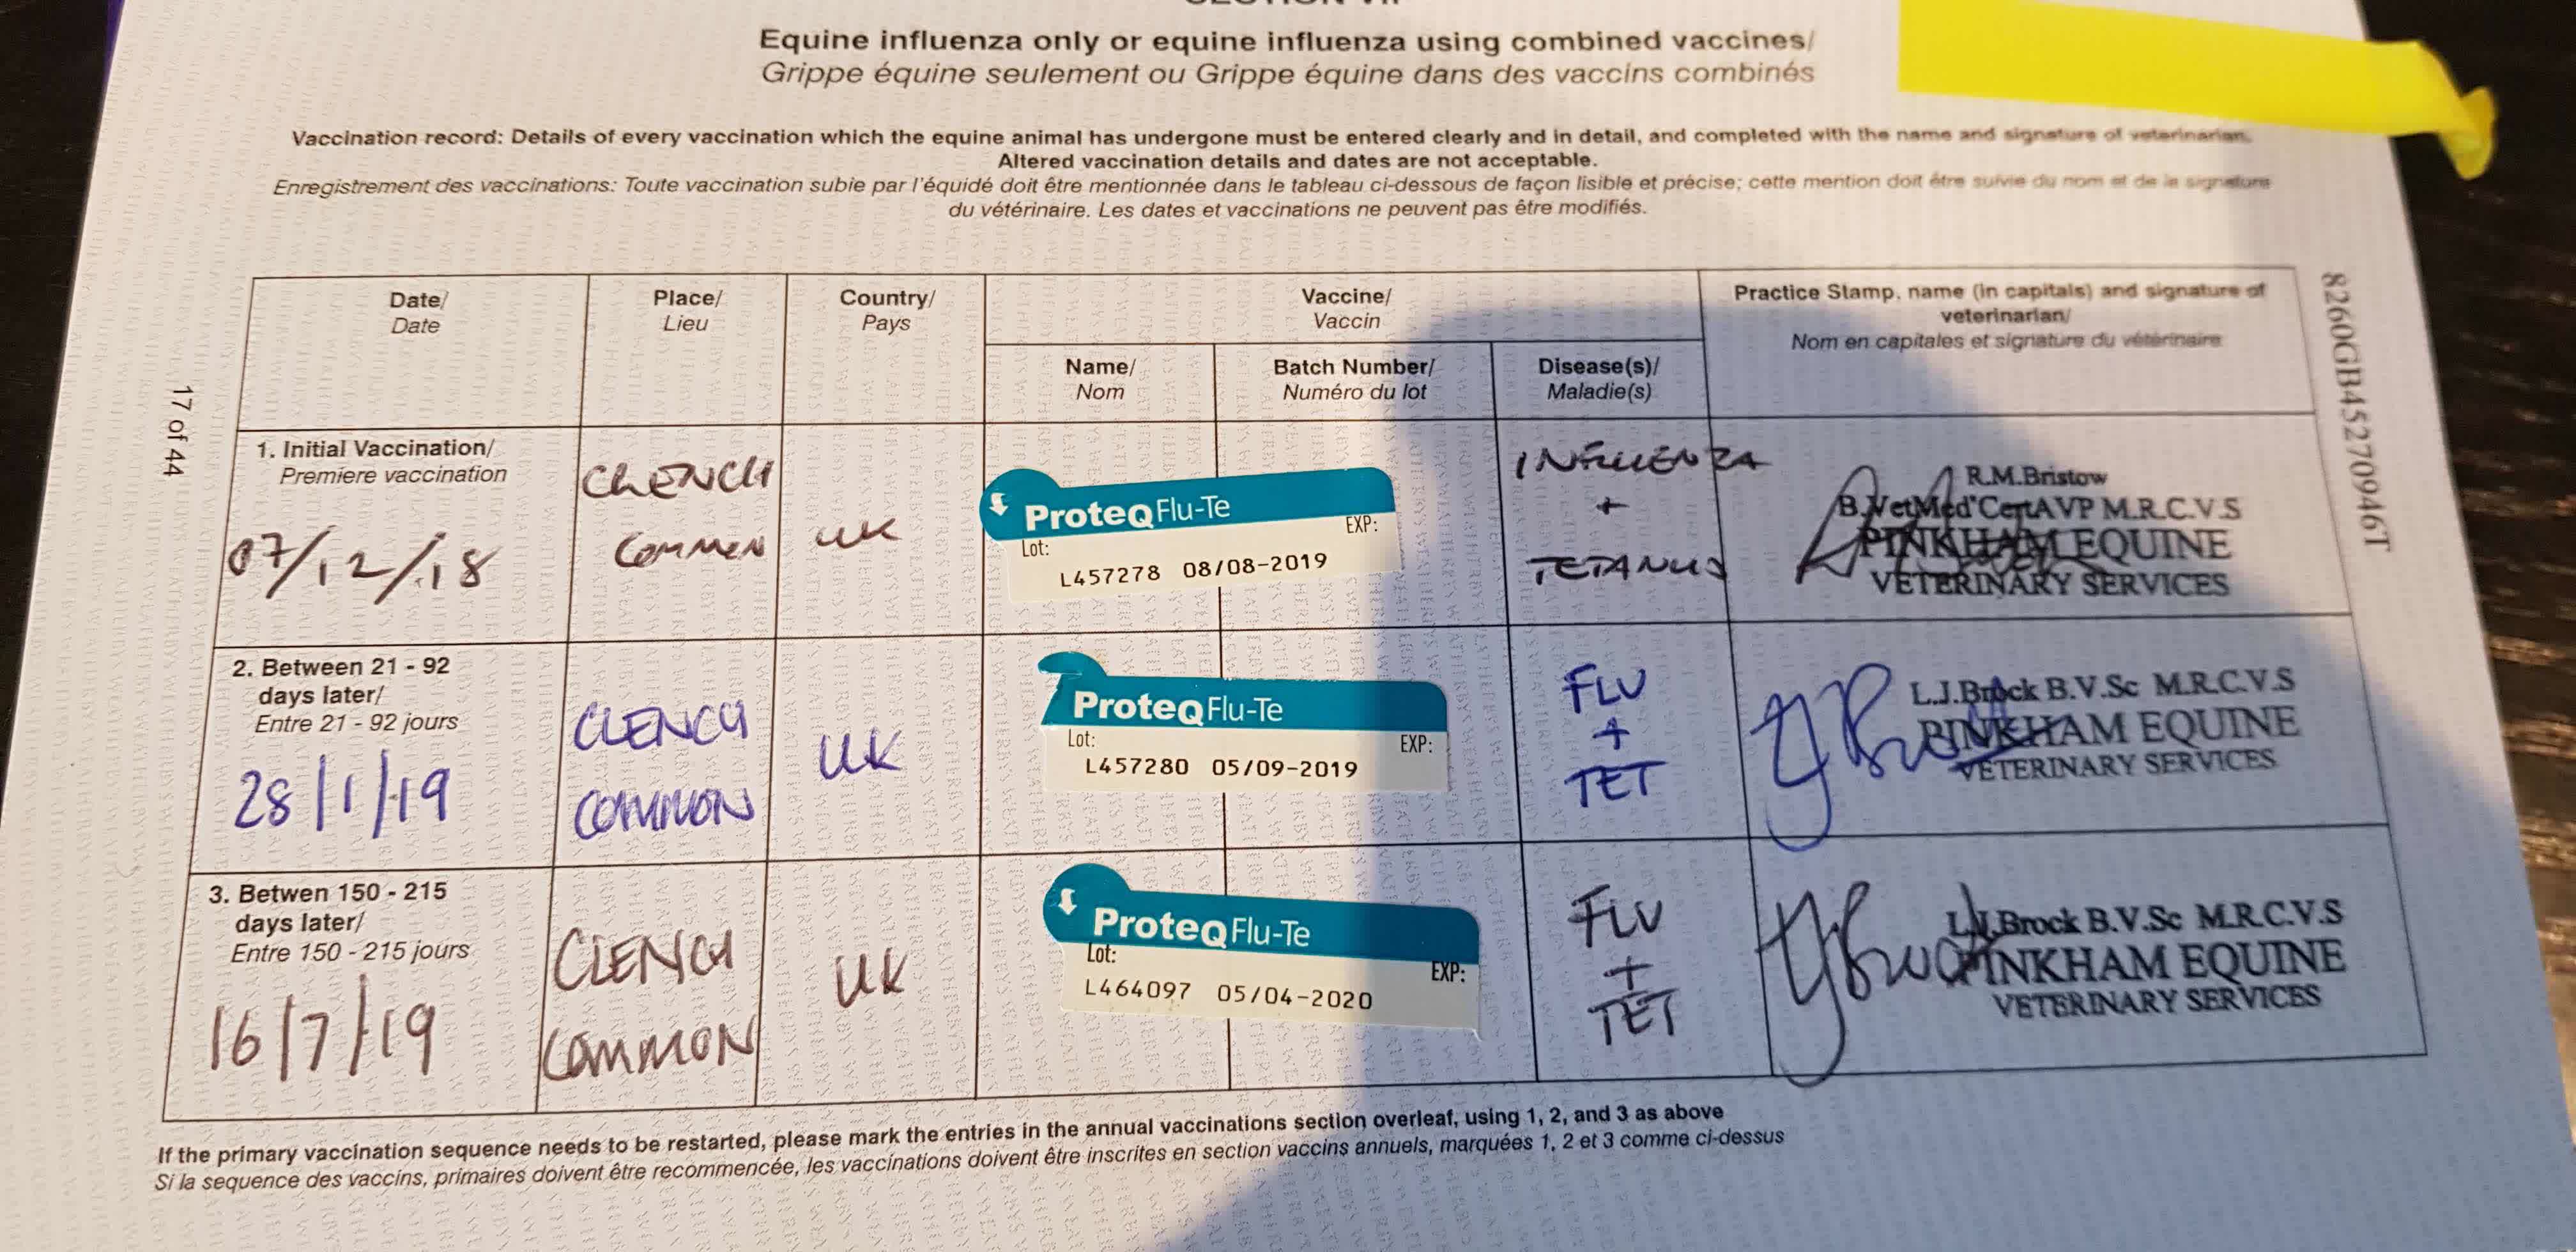 Equine influenza only or equine influenza using combined vaccines/
Grippe équine seulement ou Grippe équine dans des vaccins combinés
Vaccination record: Details of every vaccination which the equine animal has undergone must be entered clearly and in detail, and completed with the name and signature of veterinarian.
Altered vaccination details and dates are not acceptable.
Enregistrement des vaccinations: Toute vaccination subie par l'équidé doit être mentionnée dans le tableau ci-dessous de façon lisible et précise; cette mention doit être suivie du nom et de la signature
du vétérinaire. Les dates et vaccinations ne peuvent pas être modifiés.
Date/
Date
Place/
Lieu
Country/
Pays
Vaccine/
Vaccin
Name/
Nom
Batch Number/
Numéro du lot
Disease(s)/
Maladie(s)
Practice Stamp, name (in capitals) and signature of
veterinarian/
Nom en capitales et signature du vétérinaire
1. Initial Vaccination/
Premiere vaccination
07/12/18
CLENCH
COMMON
UK
ProteqFlu-Te
Lot: EXP:
L457278 08/08-2019
INFLUENZA
+
TETANUS
R.M.Bristow
B.VetMed CertAVP M.R.C.V.S
PINKHAM EQUINE
VETERINARY SERVICES
2. Between 21 - 92
days later/
Entre 21 - 92 jours
28/1/19
CLENCH
COMMON
UK
ProteqFlu-Te
Lot: EXP:
L457280 05/09-2019
FLU
+
TET
L.J.Brock B.V.Sc M.R.C.V.S
PINKHAM EQUINE
VETERINARY SERVICES
3. Betwen 150 - 215
days later/
Entre 150 - 215 jours
16/7/19
CLENCH
COMMON
UK
ProteqFlu-Te
Lot: EXP:
L464097 05/04-2020
FLU
+
TET
L.J.Brock B.V.Sc M.R.C.V.S
PINKHAM EQUINE
VETERINARY SERVICES
If the primary vaccination sequence needs to be restarted, please mark the entries in the annual vaccinations section overleaf, using 1, 2, and 3 as above
Si la sequence des vaccins, primaires doivent être recommencée, les vaccinations doivent être inscrites en section vaccins annuels, marquées 1, 2 et 3 comme ci-dessus
17 of 44
8260GB45270946T